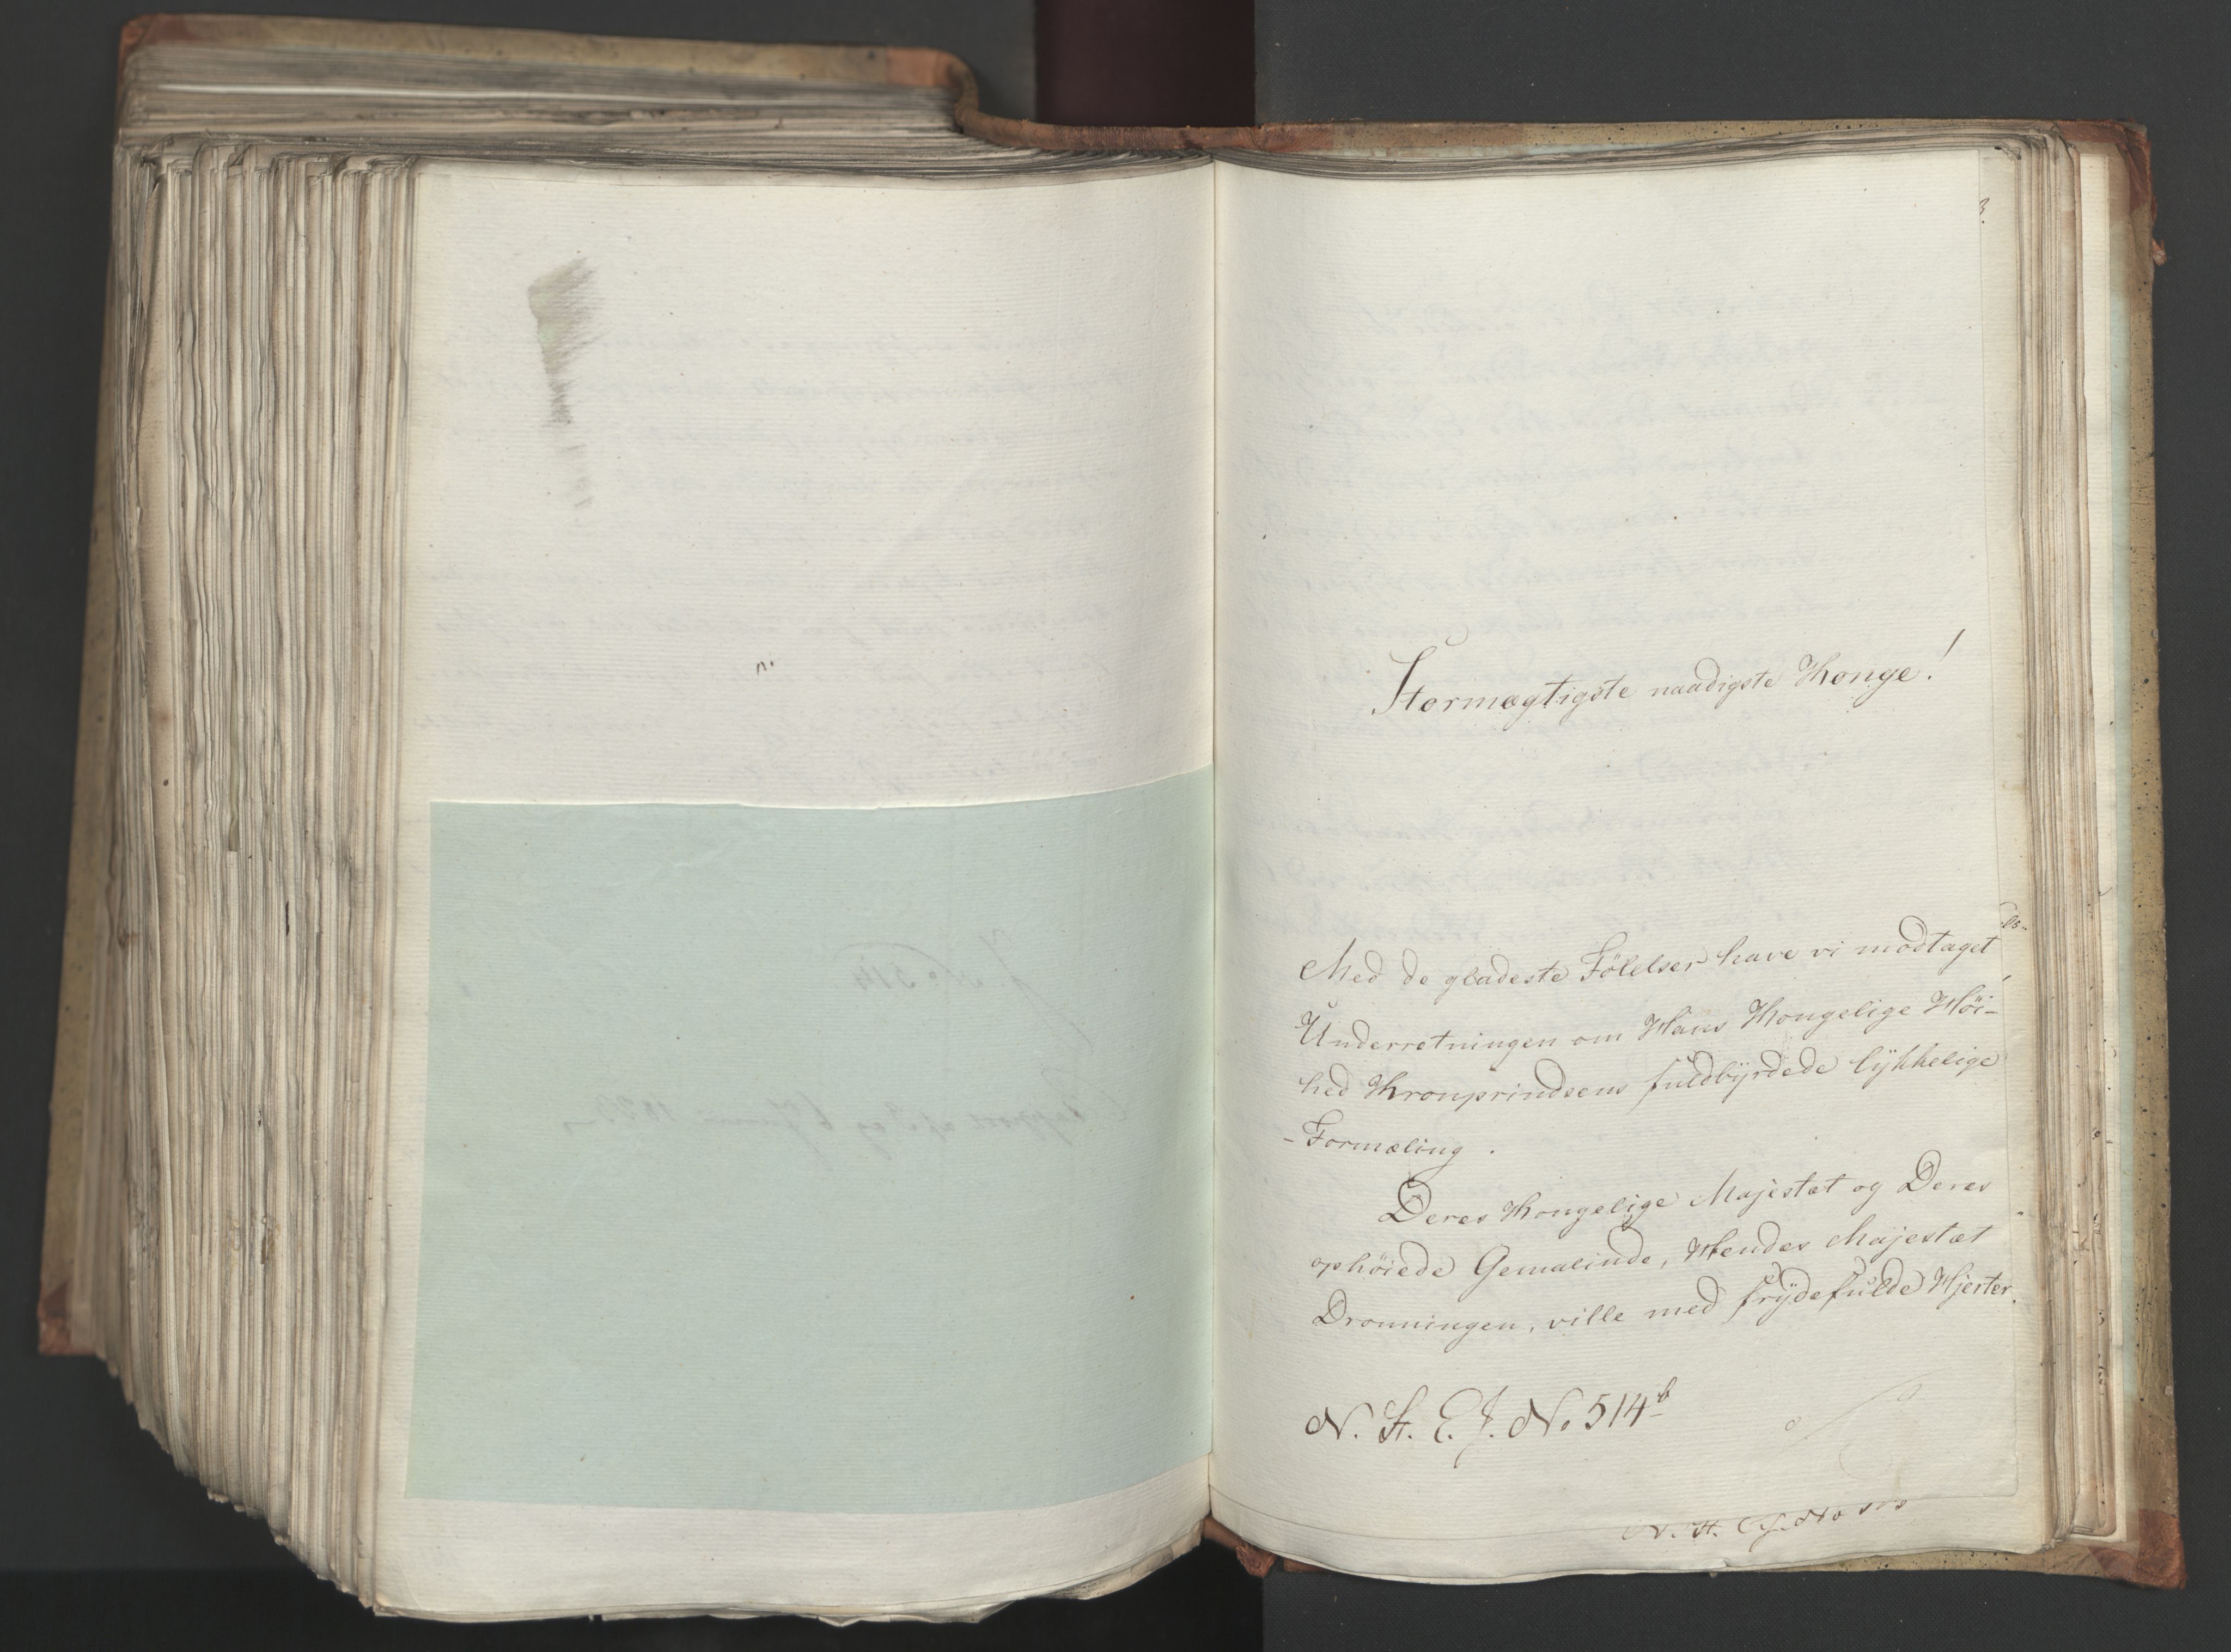 Stormægtigste naadigste Konge!
Med de gladeste Følelser have vi modtaget
Underretningen om Hans Kongelige Høi-
hed Kronprindsens fuldbÿrdede lÿkkelige
-Formæling.
Deres Kongelige Majestæt og Deres
ophøiede Gemalinde, Hendes Majestæt
Dronningen, ville med frÿdefulde Hjerter
N. St. E. J. No 514 b